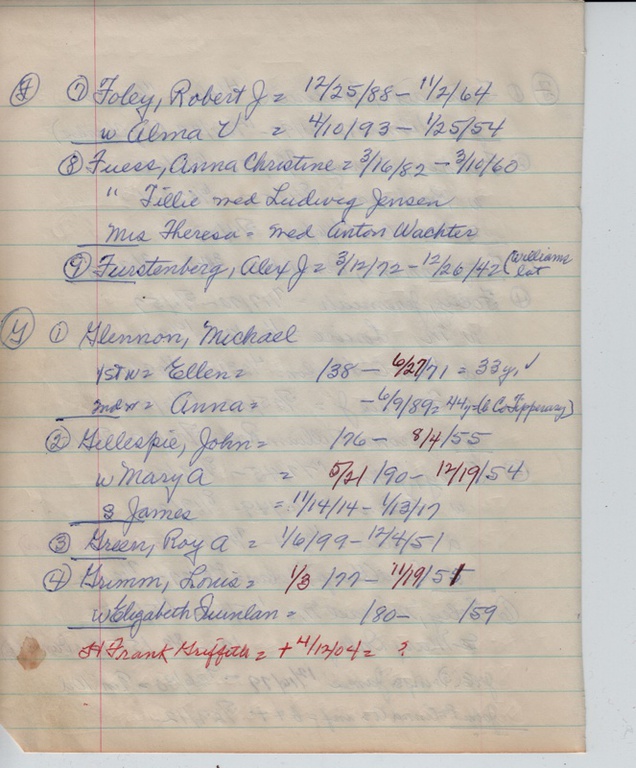 F ⑦ Foley, Robert J = 12/25/88 - 11/2/64
w Alma V = 4/10/93 - 1/25/54
⑧ Fuess, Anna Christine = 3/16/82 - 3/10/60
" Tillie med Ludwig Jensen
Mrs Theresa = med Anton Wachter
⑨ Furstenberg, Alex J = 3/12/72 - 12/26/42 (Williams
lot
G ① Glennon, Michael
1st w = Ellen = /38 - 6/27/71 = 33 y, ✓
2nd w = Anna = - 6/9/89 = 44 y (b Co Tipperary)
② Gillespie, John = /76 - 8/4/55
w Mary A = 5/21/90 - 12/19/54
s James = 11/14/14 - 1/13/17
③ Green, Roy A = 1/6/99 - 12/4/51
④ Grimm, Louis = 1/3/77 - 11/19/51
w Elizabeth Quinlan = /80 - /59
Frank Griffith = + 4/12/04 = ?